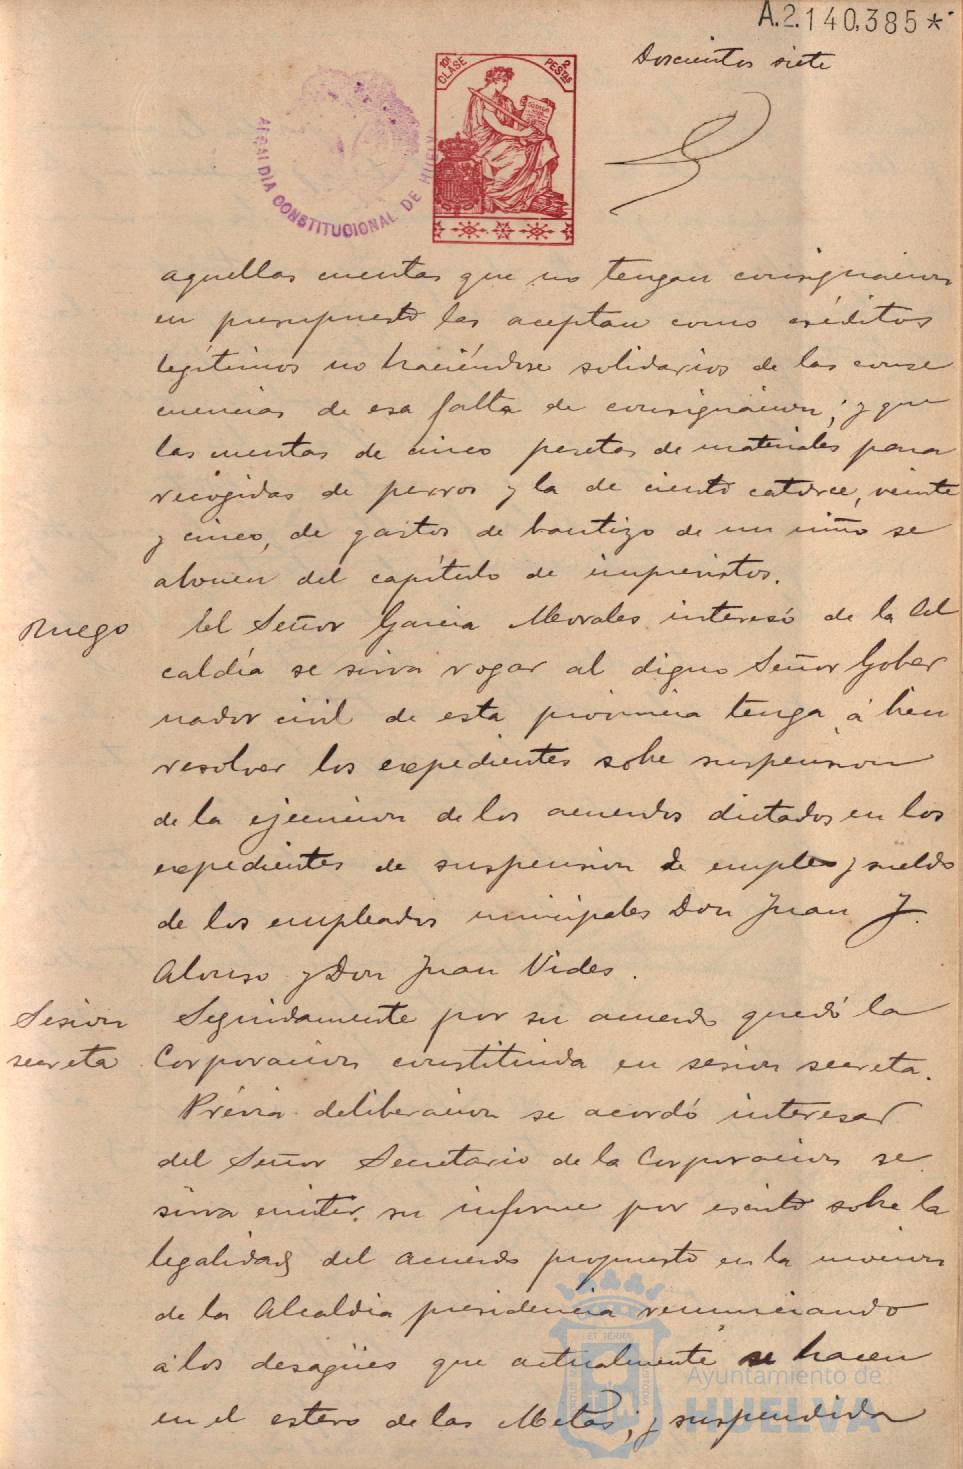 A.2.140,385*
Doscientos siete
10ª CLASE
2 PESTAS
ALCALDIA CONSTITUCIONAL DE HUELV
aquellas cuentas que no tengan consignacion
en presupuesto las aceptan como créditos
legítimos no haciéndose solidarios de las conse
cuencias de esa falta de consignacion; y que
las cuentas de cinco pesetas de materiales para
recogidas de perros y la de ciento catorce, veinte
y cinco, de gastos de bautizo de un niño se
abonen del capítulo de imprevistos.
Ruego
El Señor Garcia Morales interesó de la Al
caldía se sirva rogar al digno Señor Gober
nador civil de esta provincia tenga á bien
resolver los expedientes sobe suspension
de la ejecucion de los acuerdos dictados en los
expedientes de suspension de empleo y sueldo
de los empleados municipales Don Juan J.
Alonso y Don Juan Vides.
Sesion
secreta
Seguidamente por su acuerdo quedó la
Corporacion constituida en sesion secreta.
Prévia deliberacion se acordó interesar
del Señor Secretario de la Corporacion se
sirva emitir su informe por escrito sobre la
legalidad del acuerdo propuesto en la mocion
de la Alcaldia presidencia renunciando
á los desagües que actualmente se hacen
en el estero de las Metas; y suspendida
Ayuntamiento de
HUELVA